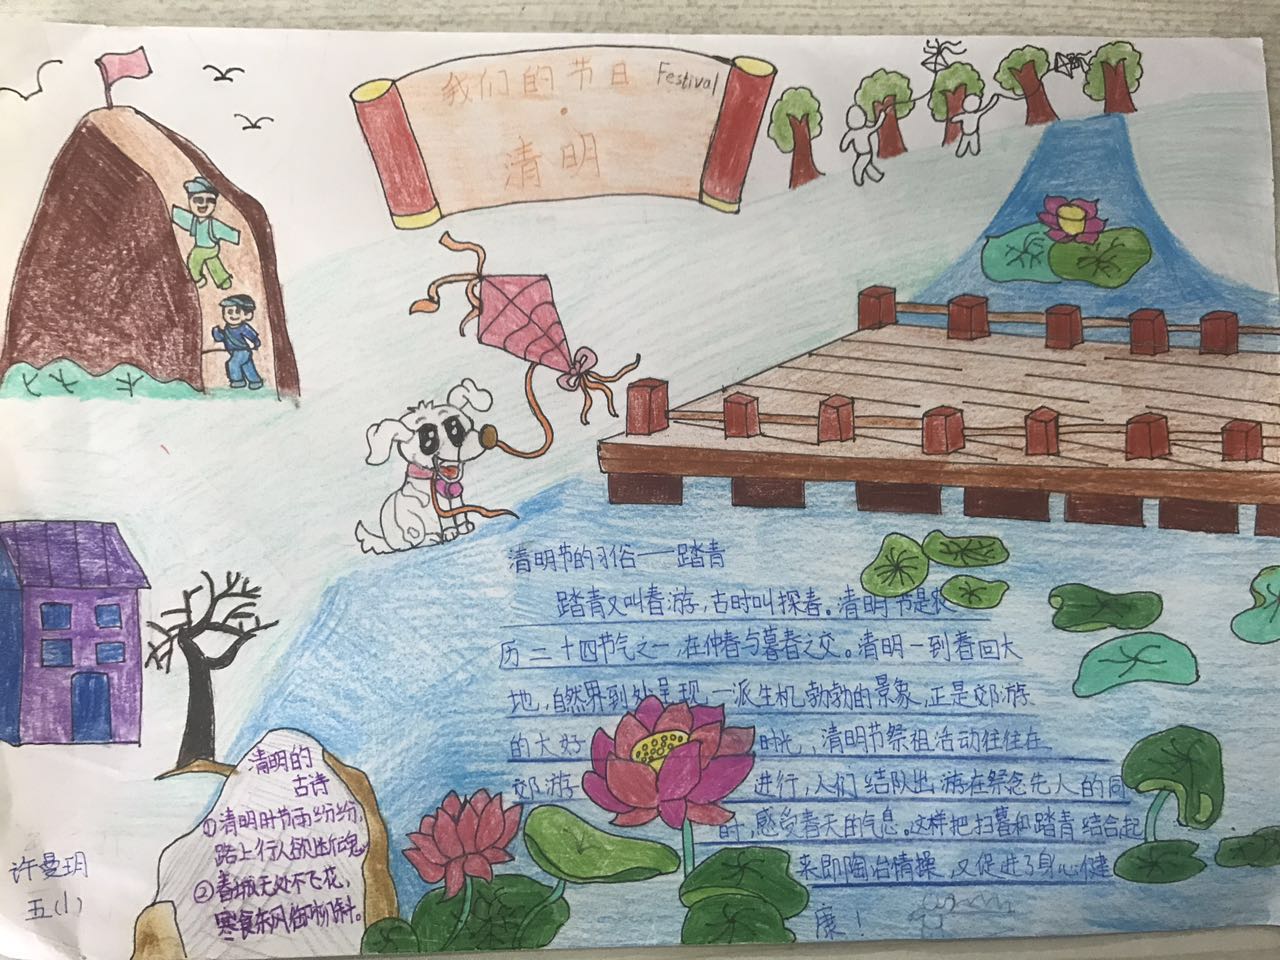 我们的节日 Festival
·
清明
清明节的习俗——踏青
踏青又叫春游，古时叫探春。清明节是农
历二十四节气之一，在仲春与暮春之交。清明一到春回大
地，自然界到处呈现一派生机勃勃的景象，正是郊游
的大好时光，清明节祭祖活动往往在
郊游进行，人们结队出游在祭念先人的同
时，感受春天的气息。这样把扫暮和踏青结合起
来即陶冶情操，又促进了身心健
康！
清明的
古诗
①清明时节雨纷纷，
路上行人欲断魂
②春城无处不飞花，
寒食东风御柳斜。
许曼玥
五(1)